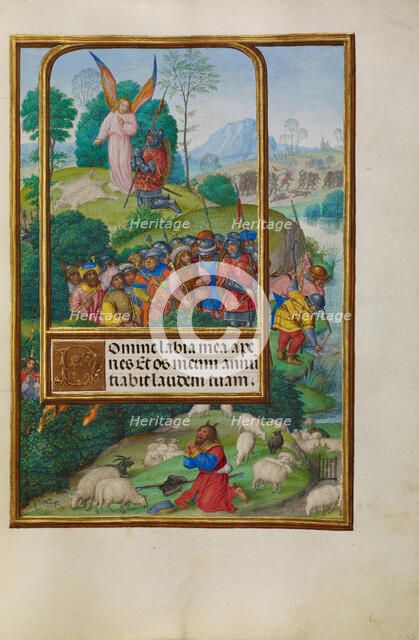 Heritage Heritage
Heritage Heritage
Domine labia mea ape
ries Et os meum annu
tiabit laudem tuam.
Heritage Heritage
Heritage Heritage